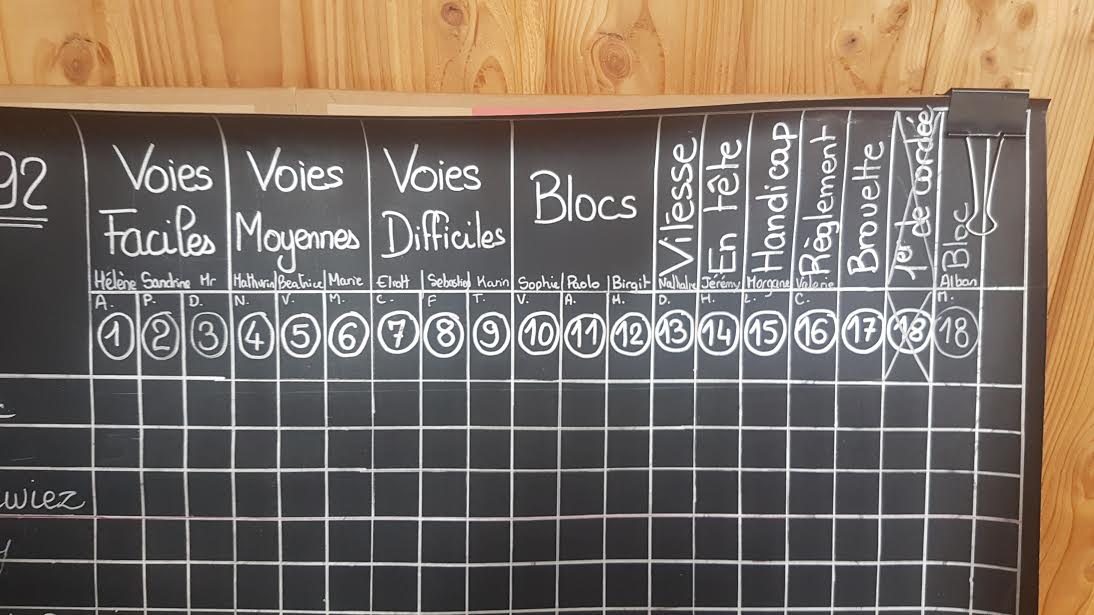 92
Voies Faciles
Voies Moyennes
Voies Difficiles
Blocs
Vitesse
En tête
Handicap
Règlement
Brouette
1er de cordée
Bloc
Hélène Sandrine Mr Mathurin Béatrice Marie Eliott Sébastien Karin Sophie Paolo Birgit Nathalie Jérémy Morgane Valérie Alban
A. P. D. N. V. M. C. F T. V. A. H. D. H. L. C. M.
1 2 3 4 5 6 7 8 9 10 11 12 13 14 15 16 17 18 18
wiez